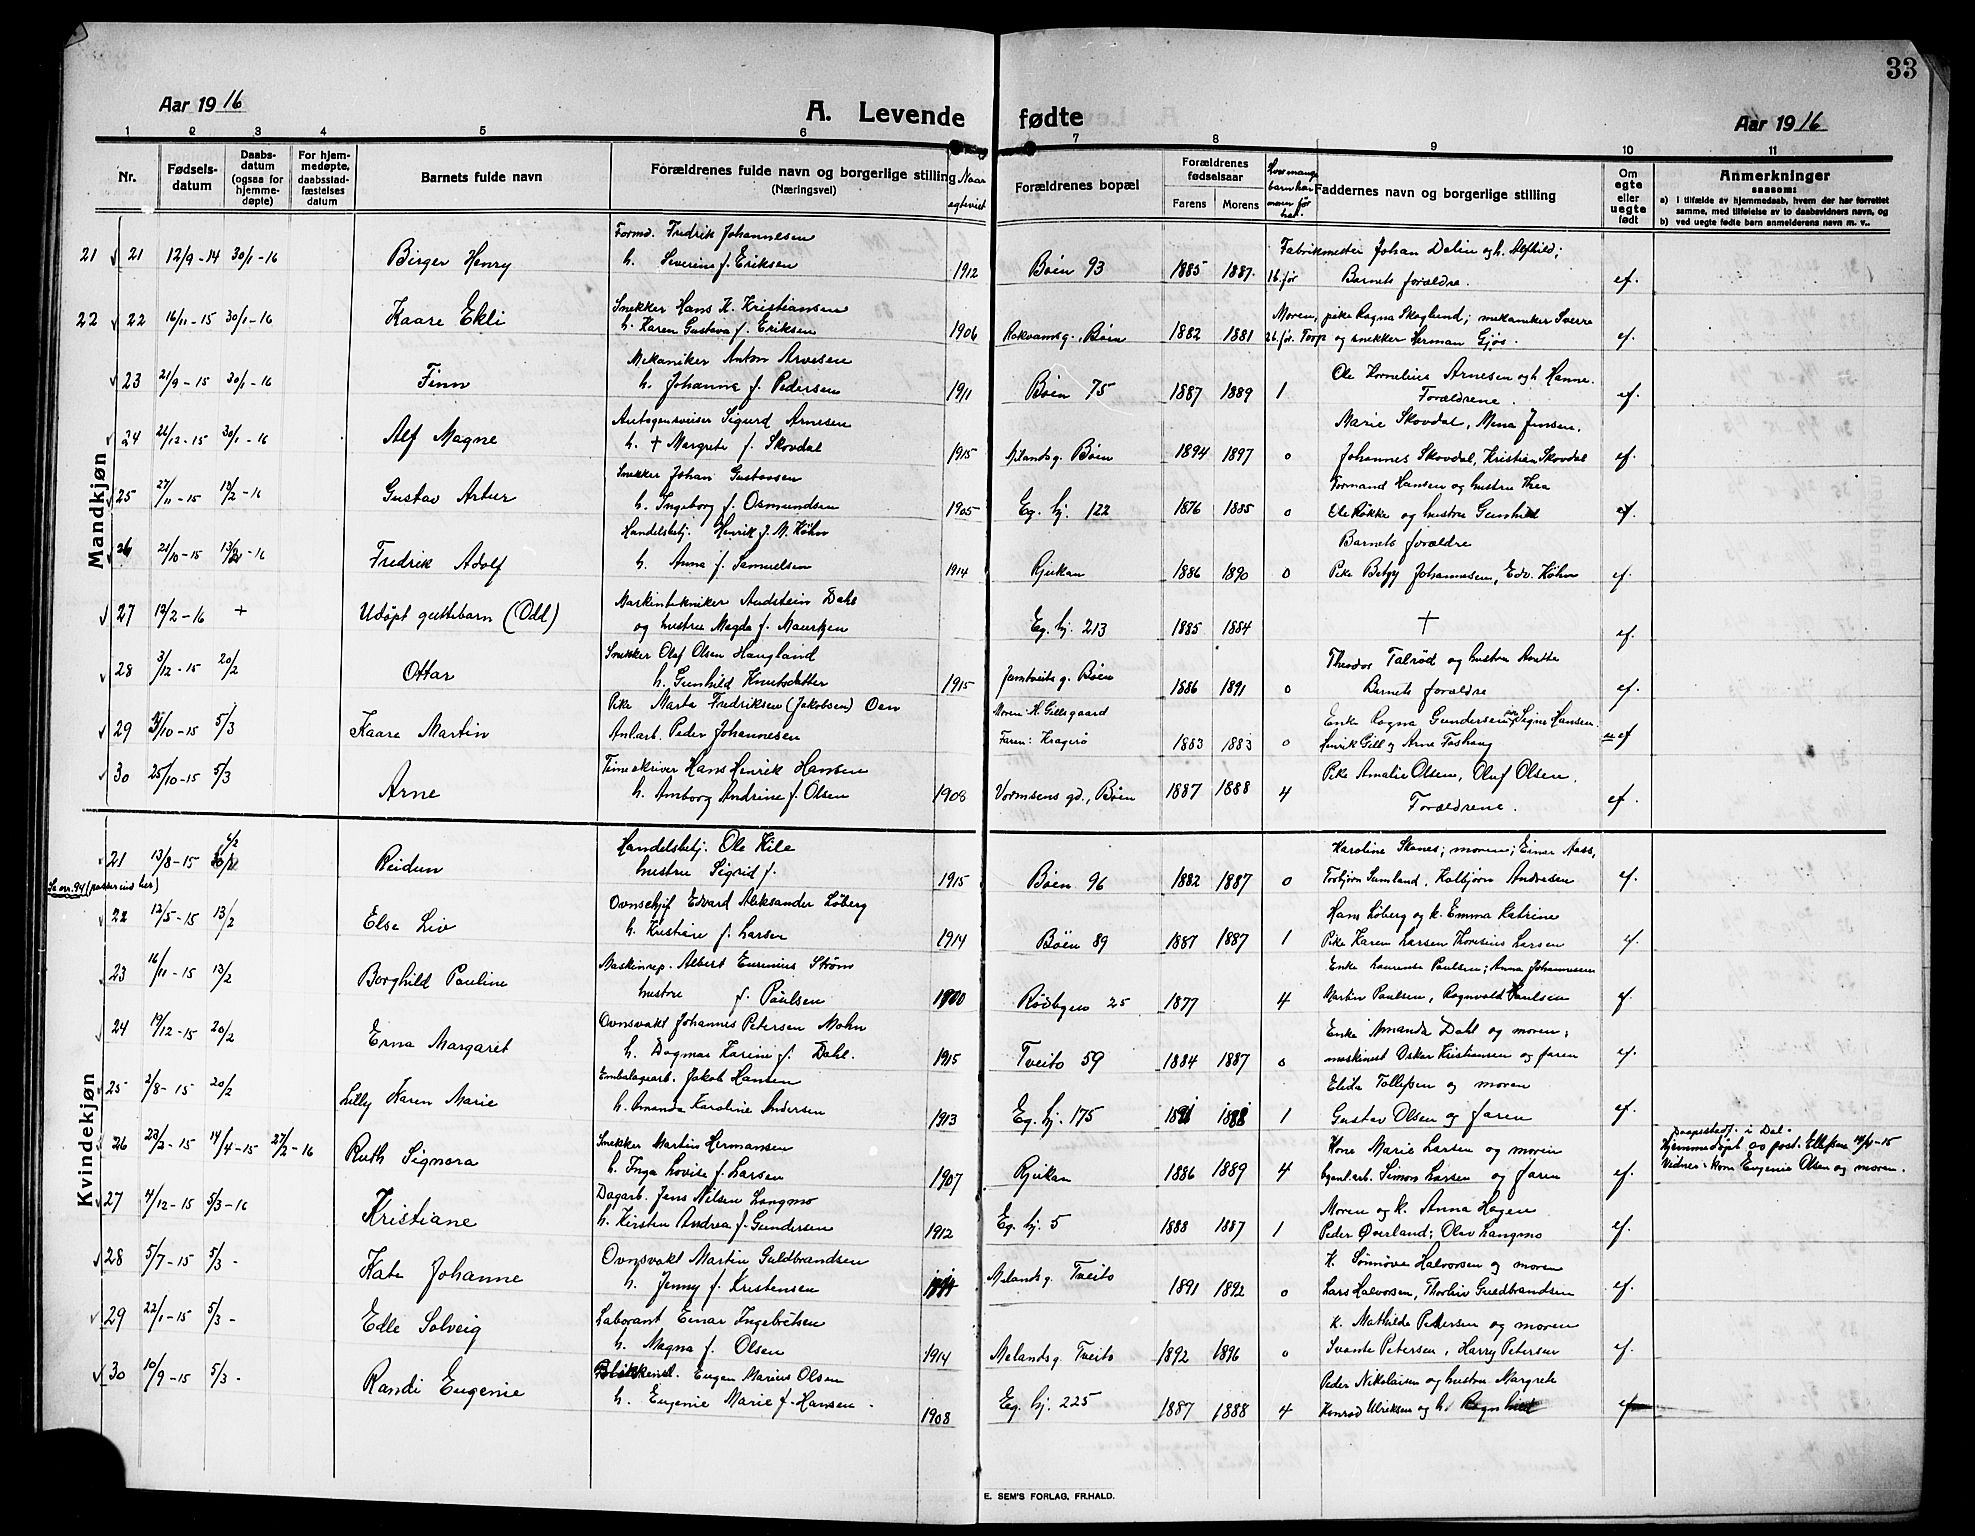 33
Aar 1916
A. Levende fødte
Aar 1916
1 2 3 4 5 6 7 8 9 10 11
Nr.
Fødsels-datum
Daabs-datum (ogsaa for hjemme-døpte)
For hjem-medøpte, daabsstad-fæstelses datum
Barnets fulde navn
Forældrenes fulde navn og borgerlige stilling (Næringsvei)
Naar egteviet
Forældrenes bopæl
Forældrenes fødselsaar
Farens Morens
Hvor mange barn har moren før hat.
Faddernes navn og borgerlige stilling
Om egte eller uegte født
Anmerkninger
saasom:
a) i tilfælde av hjemmedaab, hvem der har forrettet samme, med tilføielse av to daabsvidners navn, og
b) ved uegte fødte barn anmelderens navn m. v..
Mandkjøn
21 21 12/9-14 30/1-16 Birger Henry Formd. Fredrik Johannesen
h. Severine f. Eriksen 1912 Bøen 93 1885 1887 16. før Fabrikmester Johan Dalin og h. Alfhild;
Barnets forældre. ef.
22 22 16/11-15 30/1-16 Kaare Ekli Snekker Hans K. Kristiansen
h. Karen Gustava f. Eriksen 1906 Rakvaamsg., Bøen 1882 1881 26. før. Moren, pike Ragna Skoglund; mekaniker Sverre
Torp og snekker Herman Gjøs. ef.
23 21/9-15 30/1-16 Finn Mekaniker Anton Arvesen
h. Johanna f. Pedersen 1911 Bøen 75 1887 1889 1 Ole Kornelius Arnesen og h. Hanne.
Forældrene. ef.
24 26/12-15 30/1-16 Alf Magne Autogensveiser Sigurd Arnesen
h. + Margrete f. Skovdal 1915 Mlandsg. Bøen 1894 1897 0 Marie Skovdal, Mena Jensen,
Johannes Skovdal, Kristian Skovdal ef.
25 27/11-15 13/2-16 Gustav Artur Snekker Johan Gustavsen
h. Ingeborg f. Osmundsen 1905 Eg. hj. 122 1876 1885 0 Formand Hansen og hustru Thea
Ole Røkke og hustru Gunhild ef.
26 21/10-15 13/2-16 Fredrik Adolf Handelsbetj. Henrik J. M. Køhn
h. Anna f. Samuelsen 1914 Rjukan 1886 1890 0 Barnets forældre
Pike Betzy Johannesen, Edv. Køhn ef.
27 12/2-16 + Udøpt guttebarn (Odd) Markintekniker Audstein Dahl
og hustru Magda f. Mauritzen Eg. hj. 213 1885 1884 + ef.
28 3/12-15 20/2 Ottar Snekker Olaf Olsen Haugland
h. Gunhild Knutsdatter 1915 Jamtveits g. Bøen 1886 1891 0 Theodor Talrød og hustru Anette
Barnets forældre ef.
29 31/10-15 5/3 Kaare Martin Pike Marta Fredriksen (Jakobsen) Oen
Anl.arb. Peder Johannesen Moren: H. Gillsgaard
Faren: Kragerø 1883 1883 0 Enke Ragna Gundersen, pike Signe Hansen.
Henrik Gill og Arne Foshaug uef
30 25/10-15 5/3 Arne Timeskriver Hans Henrik Hansen
h. Amborg Andrine f. Olsen 1908 Vormsens gd., Bøen 1887 1888 4 Pike Amalie Olsen, Oluf Olsen.
Forældrene. ef.
Kvindekjøn
21 13/8-15 6/2 Reidun Handelsbetj. Ole Kile
hustru Sigrid f. 1915 Bøen 96 1882 1887 0 Karoline Skanes; moren; Einar Aass,
Torbjørn Sumland, Kolbjørn Andresen ef.
Se nr. 94 (passer ind her)
22 12/5-15 13/2 Else Liv Ovnschef Edvard Aleksander Løberg
h. Kristine f. Larsen 1914 Bøen 89 1887 1887 1 Hans Løberg og k. Emma Katrine
Pike Karen Larsen Thoresius Larsen ef.
23 16/11-15 13/2 Borghild Pauline Maskinrep. Albert Eurenius Strøm
hustru f. Paulsen 1900 Rødbyen 25 1877 4 Enke Laurense Paulsen; Anna Johannesen
Martin Paulsen, Ragnvald Paulsen ef.
24 19/12-15 20/2 Erna Margaret Ovnsvakt Johannes Petersen Mohn
h. Dagmar Karine f. Dahl. 1915 Tveito 59 1884 1887 0 Enke Amanda Dahl og moren;
maskinist Oskar Kristiansen og faren ef.
25 2/8-15 20/2 Lilly Karen Marie Embalagearb. Jakob Hansen
h. Amanda Karoline Andersen 1913 Eg. hj. 175 1891 1888 1 Elida Tollefsen og moren
Gustav Olsen og faren ef.
26 23/2-15 14/4-15 27/2-16 Ruth Signora Snekker Martin Hermansen
h. Inga Lovise f. Larsen 1907 Rjukan 1886 1889 4 Kone Marie Larsen og moren
Simon Larsen og faren ef. Daapsstadf. i Dal.
Hjemmedøpt av past. Ellefsen 14/4-15
Vidner: kone Eugenie Olsen og moren.
27 4/12-15 5/3-16 Kristiane Dagarb. Jens Nilsen Langmo
h. Kirsten Andrea f. Gundersen 1912 Eg. hj. 5 1888 1887 1 Moren og k. Anna Hagen
Peder Øverland; Olav Langmo ef.
28 5/7-15 5/3 - Kate Johanne Ovnsvakt Martin Guldbrandsen
h. Jenny f. Kristensen Mlandsg. Tveito 1891 1892 0 K. Sønnøve Halvorsen og moren
Lars Halvorsen, Thorleiv Guldbrandsen ef.
29 22/1-15 5/3 - Edle Solveig Laborant Einar Ingebretsen
h. Magna f. Olsen 1914 Mælandsg. Tveito 1892 1896 0 K. Mathilde Petersen og moren
Svante Petersen, Harry Petersen ef.
30 10/9-15 5/3 - Randi Eugenie Blikkensl. Eugen Marius Olsen
h. Eugenie Marie f. Hansen. 1908 Eg. hj. 225 1887 1888 4 Peder Nikolaisen og hustru Margrete
Konrad Ulriksen og h. Ragnhild ef
E. SEM'S FORLAG, FR.HALD.